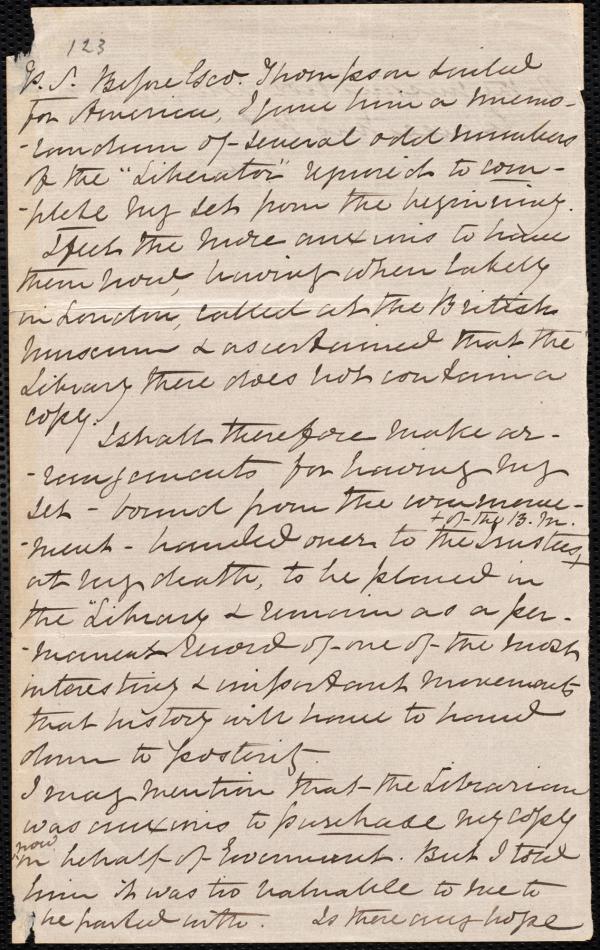 123
P.S. Before Geo. Thompson sailed
for America, I gave him a memo-
-randum of several odd numbers
of the "Liberator" required to com-
-plete my set from the beginning.
I feel the more anxious to have
them now, having when lately
in London, called at the British
Museum & ascertained that the
Library there does not contain a
copy.
I shall therefore make ar-
-rangements for having my
set - bound from the commence-
+ of the B. M.
-ment - handed over to the Trustees +
at my death, to be placed in
the "Library & remain as a per-
-manent Record of one of the most
interesting & important movements
that history will have to hand
down to posterity.
I may mention that the Librarian
was anxious to purchase my copy
now
on behalf of Government. But I told
him it was too valuable to me to
be parted with. Is there any hope